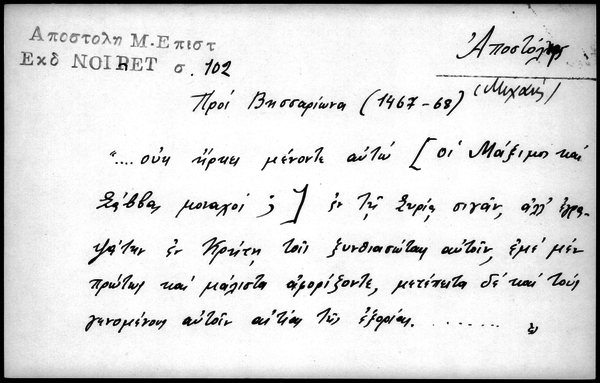 Αποστολη Μ. Επιστ
Εκδ NOIRET σ. 102
Ἀποστόλης
(Μιχαήλ)
Πρός Βησσαρίωνα (1467-68)
"....οὐκ ἤρκει μένοντε αὐτώ [οἱ Μάξιμος καὶ
Σάββας μοναχοί ;] ἐν τῇ Συρίᾳ σιγᾶν, ἀλλ' ἐγρα-
ψάτην ἐν Κρήτῃ τοῖς ξυνθιασώταις αὐτοῖν, ἐμέ μέν
πρώτως καὶ μάλιστα ἀφορίζοντε, μετέπειτα δέ καὶ τούς
γενομένους αὐτοῖν αἰτίας τῆς ἐξορίας. . . . . . . .